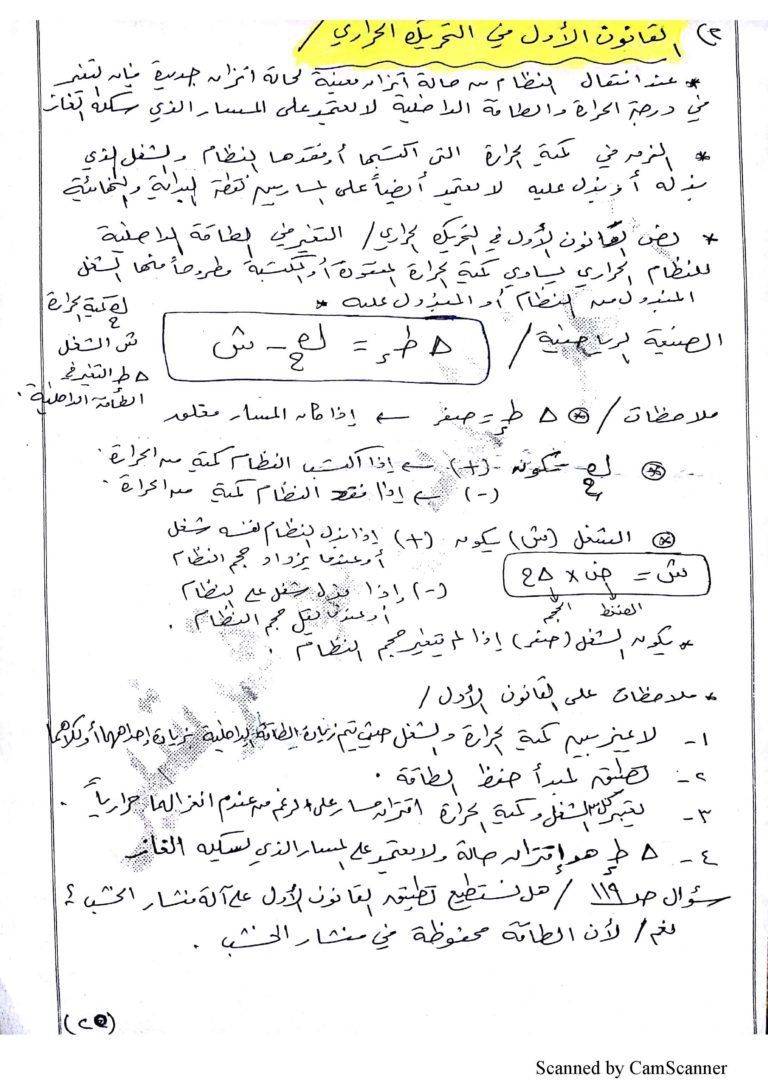 ٢) القانون الأول في التحريك الحراري /
* عند انتقال النظام من حالة اتزان معينة لحالة اتزان جديدة فإن التغير
في درجة الحرارة والطاقة الداخلية لا يعتمد على المسار الذي سلكه الغاز
* الفرق في كمية الحرارة التي اكتسبها أو فقدها النظام والشغل الذي
بذله أو بذل عليه لا يعتمد أيضاً على المسار بين نقطة البداية والنهائية
* نص القانون الأول في التحريك الحراري / التغير في الطاقة الداخلية
للنظام الحراري يساوي كمية الحرارة المفقودة أو المكتسبة مطروحاً منها الشغل
المبذول من النظام أو المبذول عليه *
الصيغة الرياضية /
Δ ط = كح - ش
كح كمية الحرارة
ش الشغل
Δ ط التغير في
الطاقة الداخلية .
ملاحظات / ⊛ Δ ط = صفر ← إذا كان المسار مغلق
⊛ كح تكون (+) ← إذا اكتسب النظام كمية من الحرارة .
(-) ← إذا فقد النظام كمية من الحرارة .
⊛ الشغل (ش) يكون (+) إذا بذل النظام نفسه شغل
أو عندما يزداد حجم النظام
ش = ض × Δ ح
الضغط الحجم
(-) إذا بذل شغل على النظام
أو عندما يقل حجم النظام .
* يكون الشغل (صفر) إذا لم يتغير حجم النظام .
* ملاحظات على القانون الأول /
١- لا يميز بين كمية الحرارة والشغل حيث يتم زيادة الطاقة الداخلية بزيادة إحداهما أو كلاهما
٢- تطبيق لمبدأ حفظ الطاقة .
٣- يعتبر كل من الشغل وكمية الحرارة اقتران مسار على الرغم من عدم انعزالهما حرارياً .
٤- Δ ط هو إقتران حالة ولا يعتمد على المسار الذي يسلكه الغاز
سؤال ص ١١٩ / هل نستطيع تطبيق القانون الأول على آلة منشار الخشب ؟
نعم / لأن الطاقة محفوظة في منشار الخشب .
Scanned by CamScanner